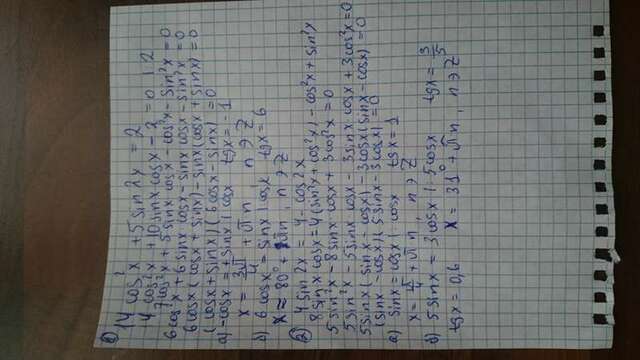 1) 14 cos²x + 5 sin 2x = 2
14 cos²x + 10 sinx cosx - 2 = 0 | : 2
7cos²x + 5 sinx cosx - cos²x - sin²x = 0
6cos²x + 6 sinx cosx - sinx cosx - sin²x = 0
6cosx (cosx + sinx) - sinx (cosx + sinx) = 0
(cosx + sinx) (6cosx - sinx) = 0
a) -cosx = + sinx | cosx tgx = -1
x = 3π/4 + πn n ∋ Z
б) 6 cosx = sinx | cosx tgx = 6
x ≈ 80° + πn, n ∋ Z
2) 4 sin 2x = 4 - cos 2x
8 sinx cosx = 4 (sin²x + cos²x) - cos²x + sin²x
5 sin²x - 8 sinx cosx + 3 cos²x = 0
5 sin²x - 5 sinx cosx - 3 sinx cosx + 3 cos²x = 0
5 sinx (sinx - cosx) - 3cosx (sinx - cosx) = 0
(sinx - cosx) (5sinx - 3cosx) = 0
a) sinx = cosx | · cosx tgx = 1
x = π/4 + πn, n ∋ Z
б) 5 sinx = 3cosx | · 5cosx tgx = 3/5
tgx = 0,6 x = 31° + πn, n ∋ Z